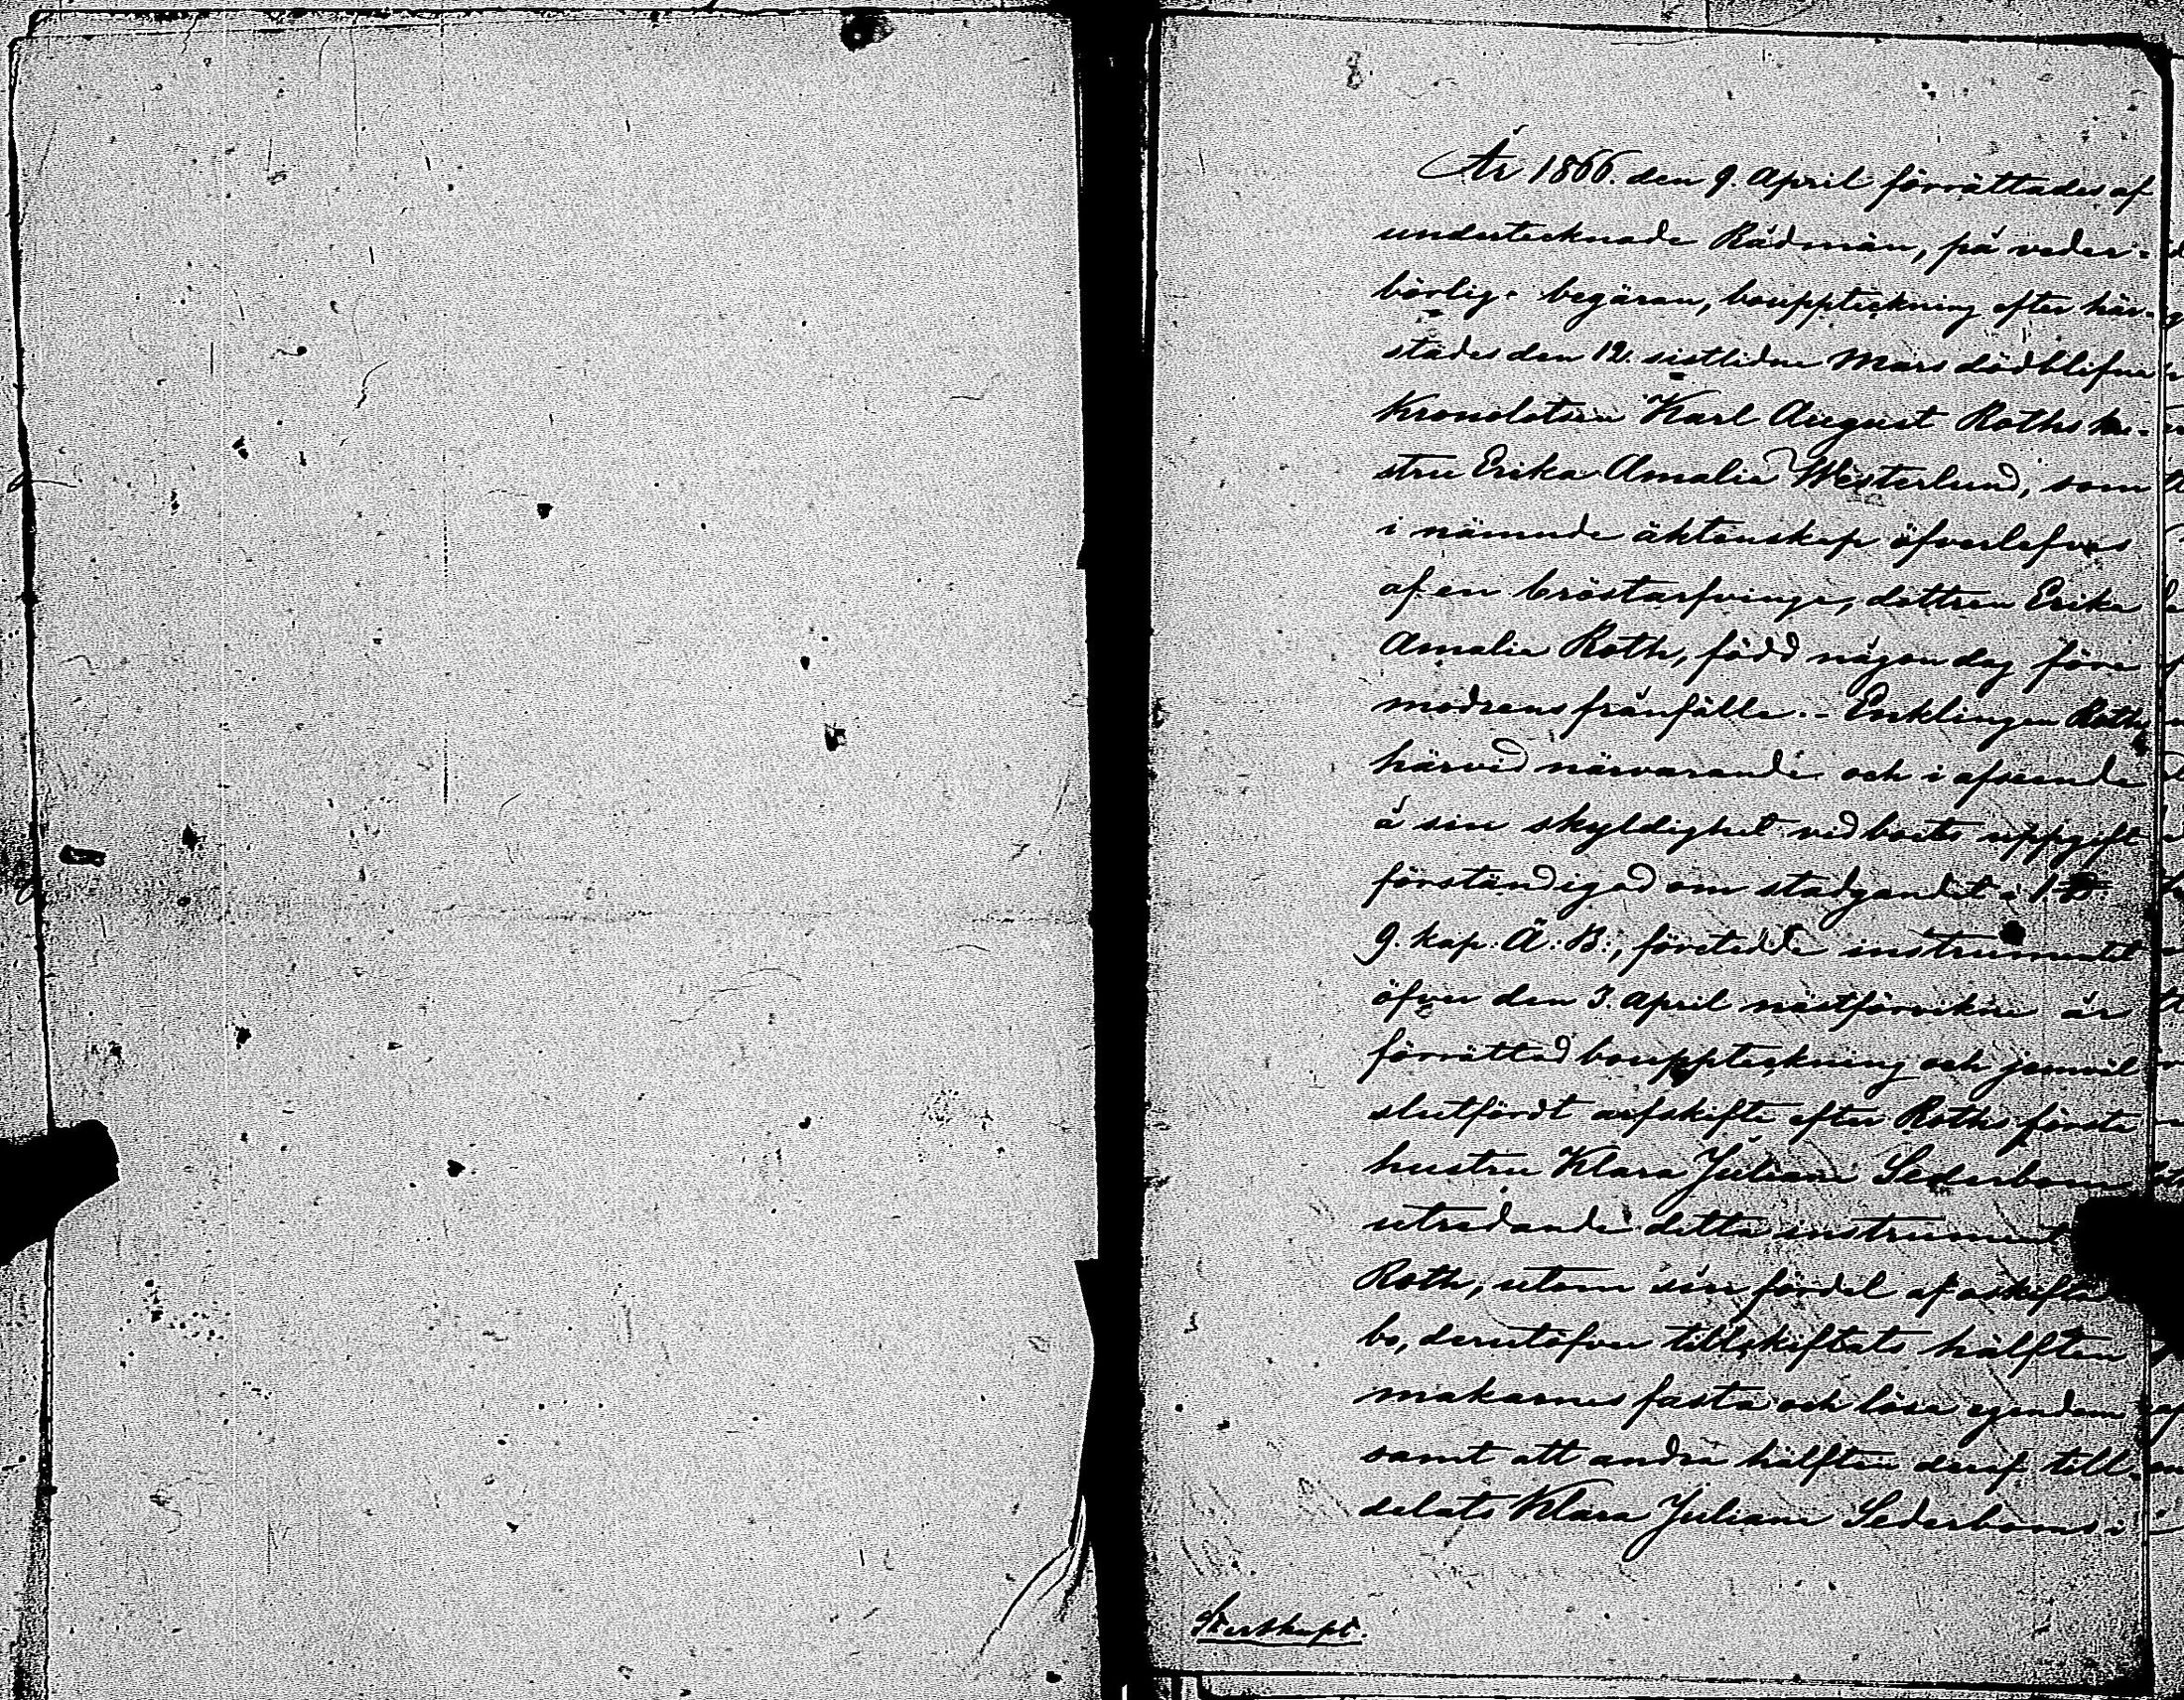 År 1866. den 9. April förrättades af
undertecknade Rådmän, på veder-
börlig begäran, bouppteckning efter här-
städes den 12. sistlidne Mars dödblifne
Kronolotsen Karl August Roths hu-
stru Erika Amalia Westerlund, som
i nämnde äktenskap öfverlefves
af en bröstarfvinge, dottren Erika
Amalia Roth, född någon dag före
modrens frånfälle. - Enklingen Roth,
härvid närvarande och i afseende
å sin skyldighet vid boets uppgift
förständigad om stadgandet i 1. §.
9. kap. Ä. B., företedde instrumentet
öfver den 3. April nästförvikne år
förrättad bouppteckning och jemväl
slutfördt arfskifte efter Roths första
hustru Klara Juliana Sederbom
utredande detta instrument
Roth, utom sin fördel af oskifto
bo, derutöfver tillskiftats hälften
makarnes fasta och lösa egendom
samt att andra hälften deraf till-
delats Klara Juliana Sederboms i
Sterbhuset.